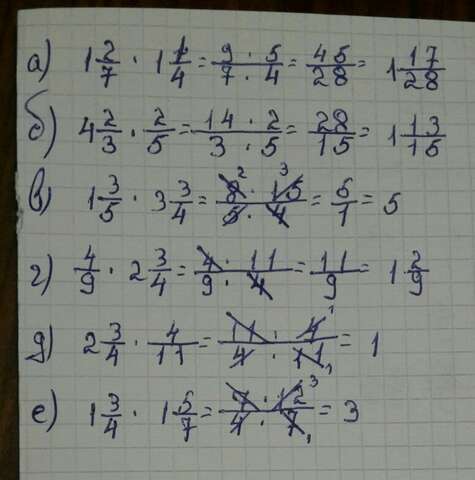 а) 1 2/7 · 1 1/4 = 9 · 5/7 · 4 = 45/28 = 1 17/28
б) 4 2/3 · 2/5 = 14 · 2/3 · 5 = 28/15 = 1 13/15
в) 1 3/5 · 3 3/4 = 8 2 · 15 3/5 · 4 = 6/1 = 5
г) 4/9 · 2 3/4 = 4 · 11/9 · 4 = 11/9 = 1 2/9
д) 2 3/4 · 4/11 = 11 · 4 1/4 · 11 1 = 1
е) 1 3/4 · 1 5/7 = 7 · 12 3/4 · 7 1 = 3